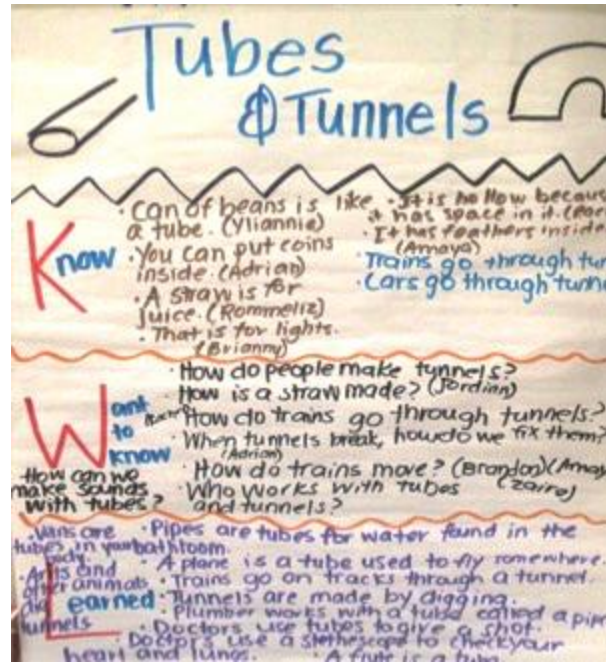 Tubes
& Tunnels
Know
· Can of beans is like
a tube. (Yliannie)
· You can put coins
inside. (Adrian)
· A straw is for
juice. (Rommeliz)
· That is for lights.
(Brianny)
· It is hollow becau
it has space in it.
· It has feathers inside
(Amaya)
· Trains go through tu
· Cars go through tunn
Want
to
Know
· How do people make tunnels?
· How is a straw made? (Jordian)
· How do trains go through tunnels?
· When tunnels break, how do we fix them?
(Adrian)
· How do trains move? (Brandon) (Amay
· Who works with tubes (Zaire)
and tunnels?
How can we
make sounds
with tubes?
Learned
· Veins are
tubes in your
body.
· Ants and
other animals
dig
tunnels
· Pipes are tubes for water found in the
bathroom.
· A plane is a tube used to fly somewhere.
· Trains go on tracks through a tunnel.
· Tunnels are made by digging.
· Plumber works with a tube called a pipe
· Doctors use tubes to give a shot.
· Doctors use a stethescope to check your
heart and lungs.
· A flute is a tub